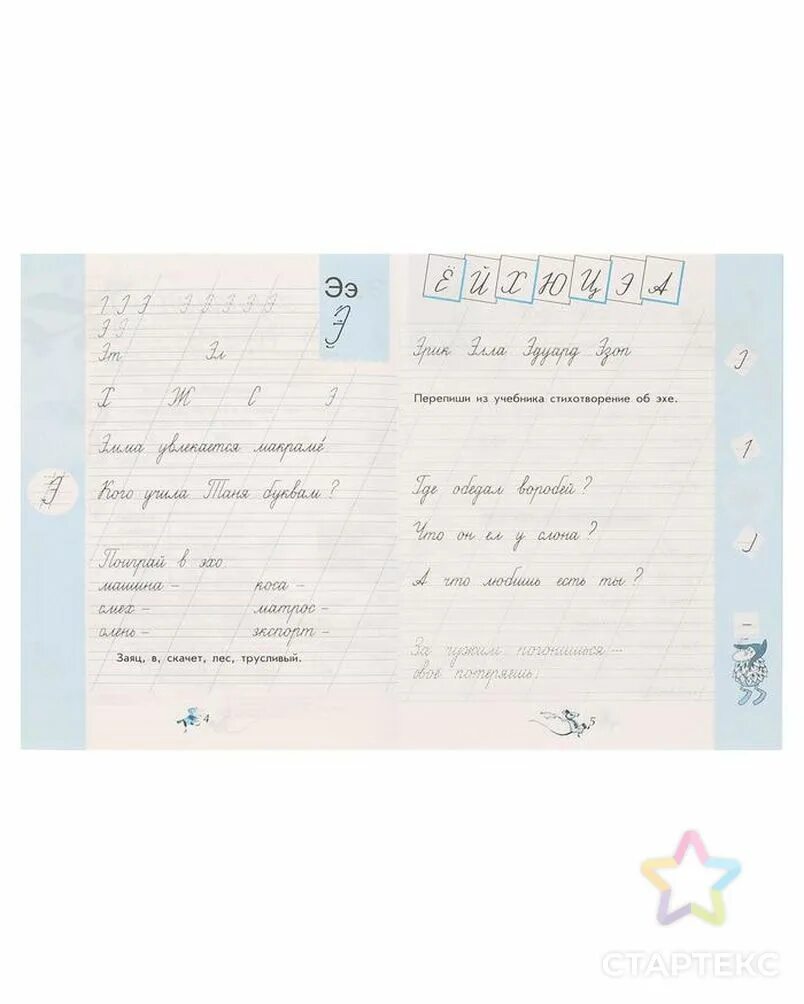 Ээ
Э
Э Э Э Э Э Э Э Э
Э Э
Эт Эл
Х Ж С Э
Эмма увлекается макраме́
Кого учила Таня буквам?
Э
Поиграй в эхо:
машина – коса –
смех – матрос –
олень – экспорт –
Заяц, в, скачет, лес, трусливый.
4
Ё Й Х Ю Ц Э А
Эрик Элла Эдуард Эзоп
Э
Перепиши из учебника стихотворение об эхе.
Где обедал воробей?
Что он ел у слона?
А что любишь есть ты?
За чужим погонишься –
своё потеряешь.
5
СТАРТЕКС